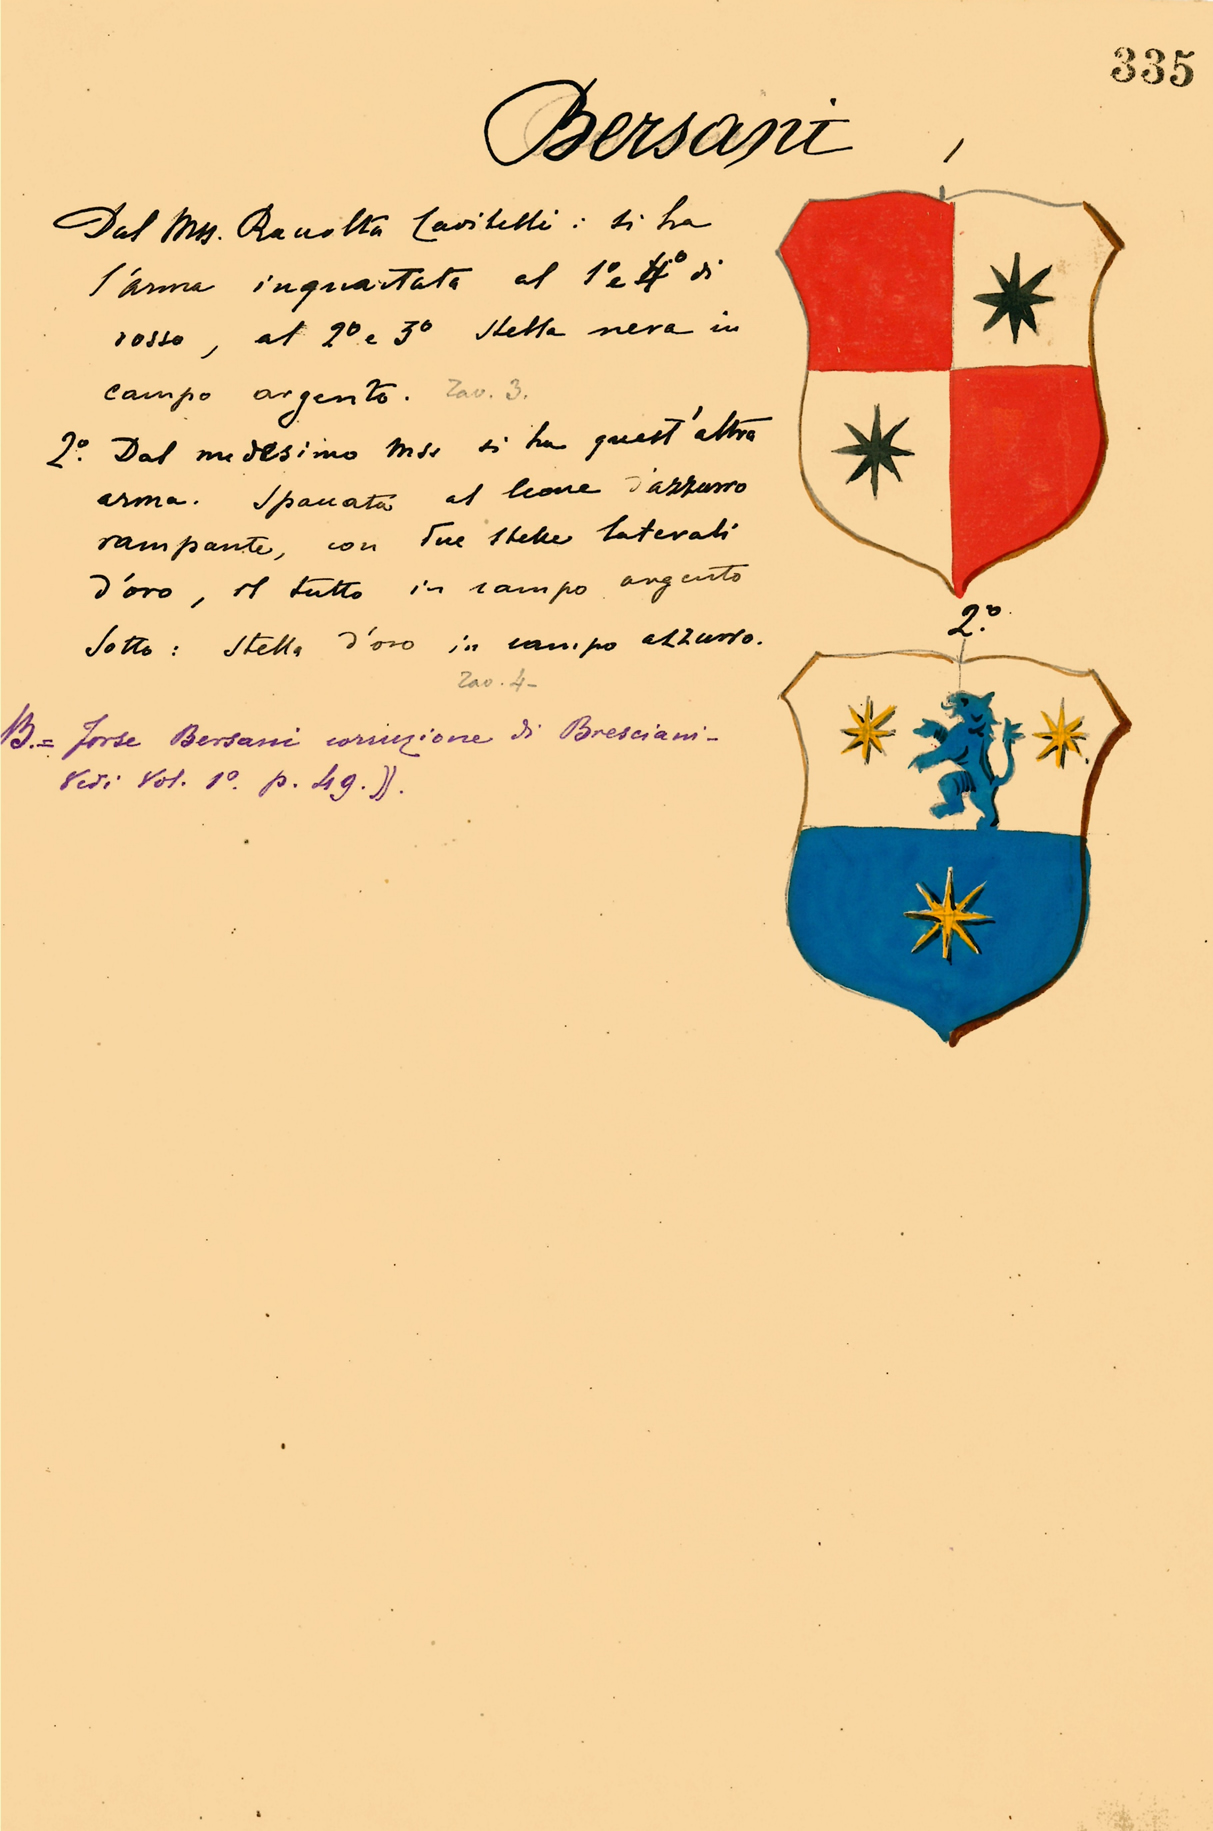 335
Bersani
Dal Mss. Raccolta Cavitelli : si ha
l'arma inquartata al 1º e 4º di
rosso, al 2º e 3º stella nera in
campo argento. Tav. 3.
2º. Dal medesimo Mss si ha quest'altra
arma. Spaccata al leone d'azzurro
rampante, con due stelle laterali
d'oro, il tutto in campo argento
Sotto: stella d'oro in campo azzurro.
Tav. 4-
B.= Forse Bersani corruzione di Bresciani-
Vedi Vol. 1º. p. 49.)).
1
2º.